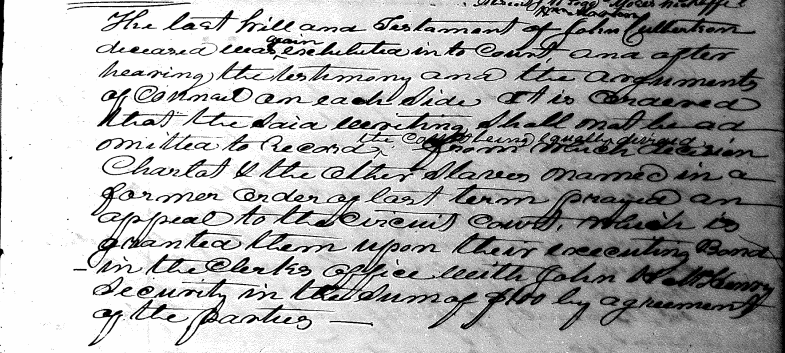 The last Will and Testament of John Culbertson
again
deceased was exhibited in to Court and after
hearing the testimony and the arguments
of Counsel on each side It is ordered
that the said writing shall not be ad
the Court being equally divided
omitted to Record, from which decision
Charlot & the other slaves named in a
former order of last term prayed an
appeal to the Circuit Court, which is
granted them upon their executing Bond
in the Clerks office with John H McHenry
Security in the sum of $100 by agreement
of the parties —